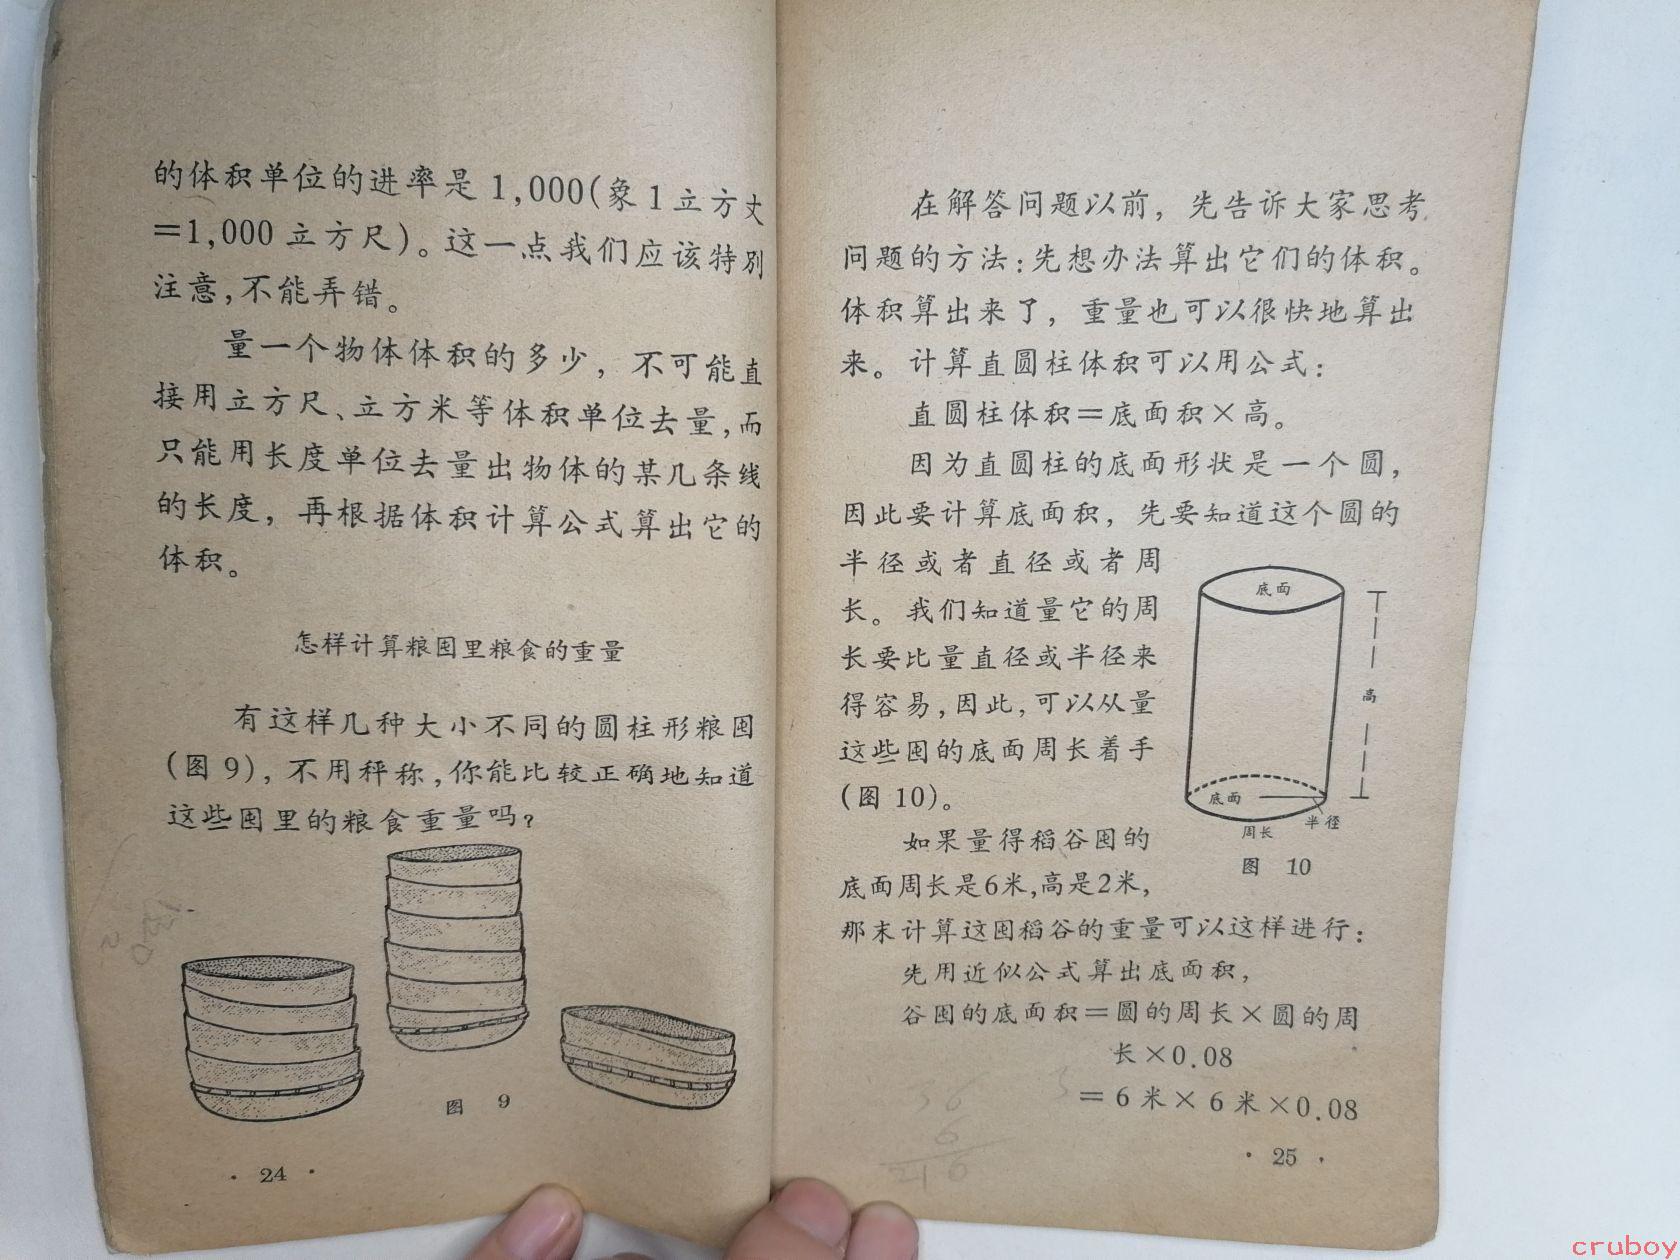 的体积单位的进率是 1,000(象 1 立方丈
=1,000 立方尺)。这一点我们应该特别
注意,不能弄错。
量一个物体体积的多少，不可能直
接用立方尺、立方米等体积单位去量,而
只能用长度单位去量出物体的某几条线
的长度，再根据体积计算公式算出它的
体积。
怎样计算粮囤里粮食的重量
有这样几种大小不同的圆柱形粮囤
(图 9)，不用秤称,你能比较正确地知道
这些囤里的粮食重量吗?
图 9
· 24 ·
在解答问题以前，先告诉大家思考
问题的方法:先想办法算出它们的体积。
体积算出来了，重量也可以很快地算出
来。计算直圆柱体积可以用公式:
直圆柱体积=底面积×高。
因为直圆柱的底面形状是一个圆，
因此要计算底面积，先要知道这个圆的
半径或者直径或者周
长。我们知道量它的周
长要比量直径或半径来
得容易,因此,可以从量
这些囤的底面周长着手
(图 10)。
底面
高
底面
半径
周长
图 10
如果量得稻谷囤的
底面周长是6米,高是2米,
那末计算这囤稻谷的重量可以这样进行:
先用近似公式算出底面积，
谷囤的底面积=圆的周长×圆的周
长×0.08
=6米×6米×0.08
36
6
216
3
· 25 ·
cruboy